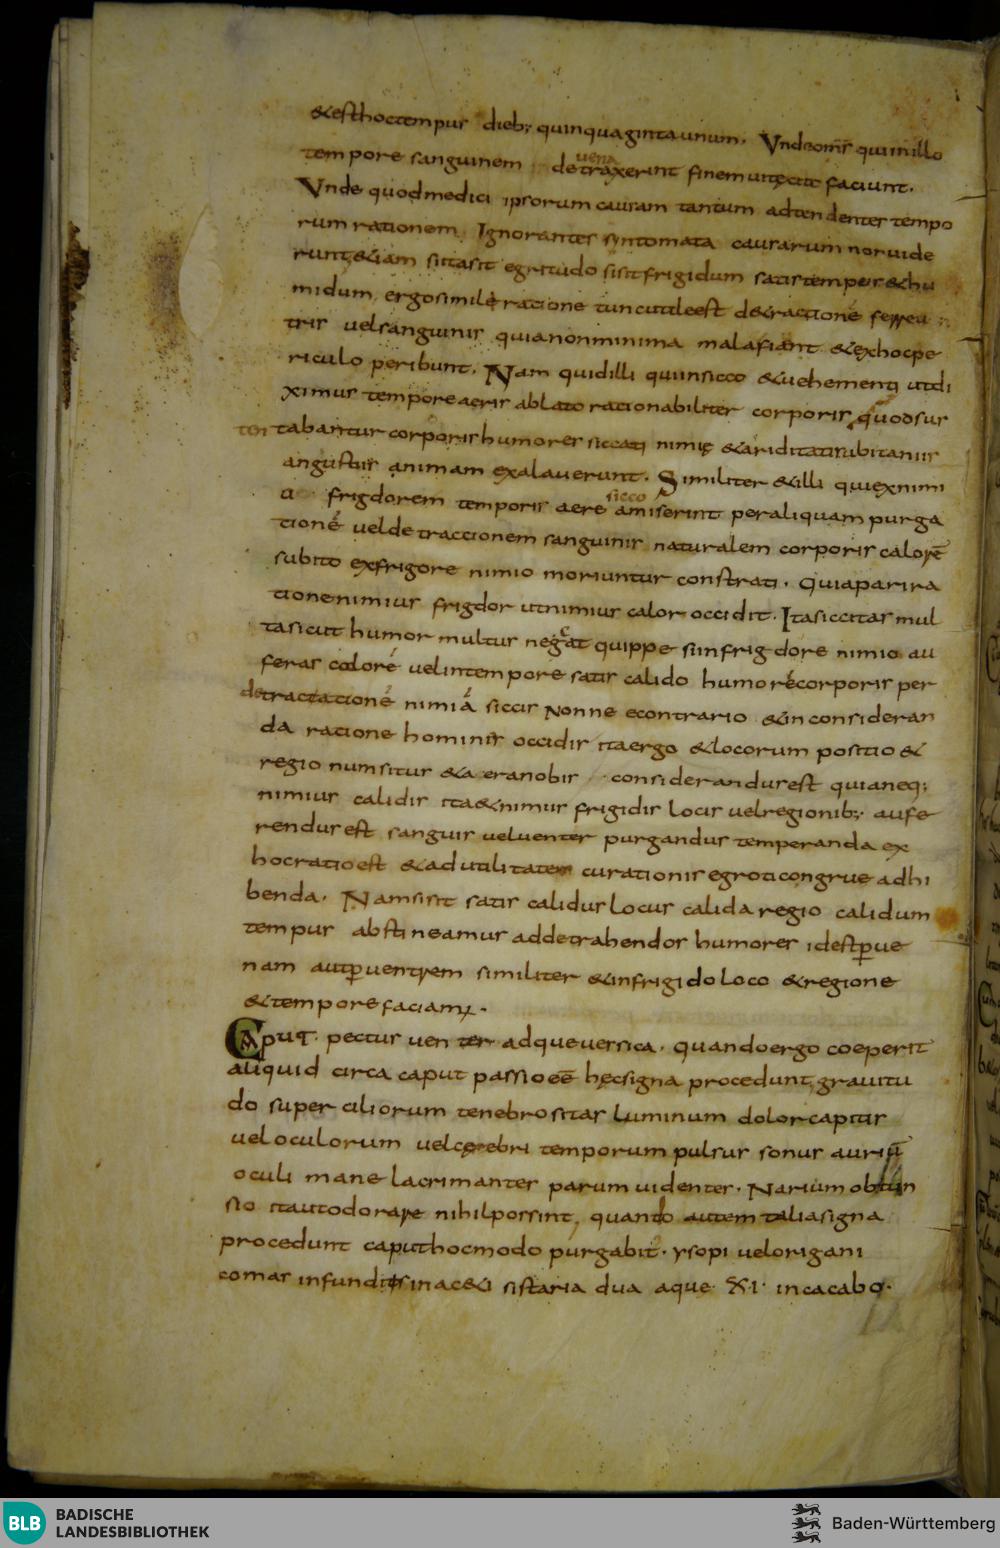 &esthoctempus dieb; quinquagintaunum. Vndeom̅s quiinillo
tempore sanguinem uena detraxerint finem uitęcito faciunt.
Vnde quodmedici ipsorum causam tantum adtendentes tempo
rum rationem. Ignorantes syntomata causarum nonuide
runt&iam sitasit egritudo sisitfrigidum satistempus&hu
midum, ergosimileratione tuncutileest d&ractione uen
tris uelsanguinis quianonminima malafiant &exhocpe
riculo peribunt. Nam quidilli quiinsicco &uehementi utdi
ximus temporeaeris ablato rationabiliter corporis quodsus
tabantur corporishumores siccati nimię &ariditatisubitaniis
angustiis animam exalauerunt. Similiter &illi quiexnimi
a frigdorem temporis aere sicco amiserint peraliquam purga
tione ueldetractionem sanguinis naturalem corporis calorē
subito exfrigore nimio moriuntur constrati. Quiaparira
tionenimius frigdor utnimius calor occidit. Itasiccitas mul
tasicut humor multus negat quippe siinfrigdore nimio au
feras colore uelintempore satis calido humorecorporis per
detractatione nimia siccis Nonne econtrario &inconsideran
da ratione hominis occidis itaergo &locorum positio &
regio numsitus &a eranobis considerandusest quianeq;
nimius calidis ita&nimus frigidis locis uelregionib; aufe
rendusest sanguis uelventer purgandus temperanda ex
hocratioest &adutilitatem curationisegroticongrue adhi
benda. Namsisit satis calidus locus calida regio calidum
tempus abstineamus addetrahendos humores idestp̱ue
nam autp̱uentrem similiter &infrigido loco &regione
&temporefaciamx.
Caput. pectus uenter adqueuersica. quandoergo coeperit
aliquid circa caput passioeē hęcsigna procedunt, grauitu
do superciliorum tenebrositas luminum dolorcapitis
ueloculorum uelcerebri temporum pulsus sonus auriū
oculi mane lacrimantes parum uidentes. Narium obtun
sio itautodorare nihilpossint, quando autem taliasigna
procedunt caputhocmodo purgabis. ysopi uelorigani
comas infundis inac&i sistaria dua aque XI. incacabo.
BLB BADISCHE
LANDESBIBLIOTHEK
Baden-Württemberg